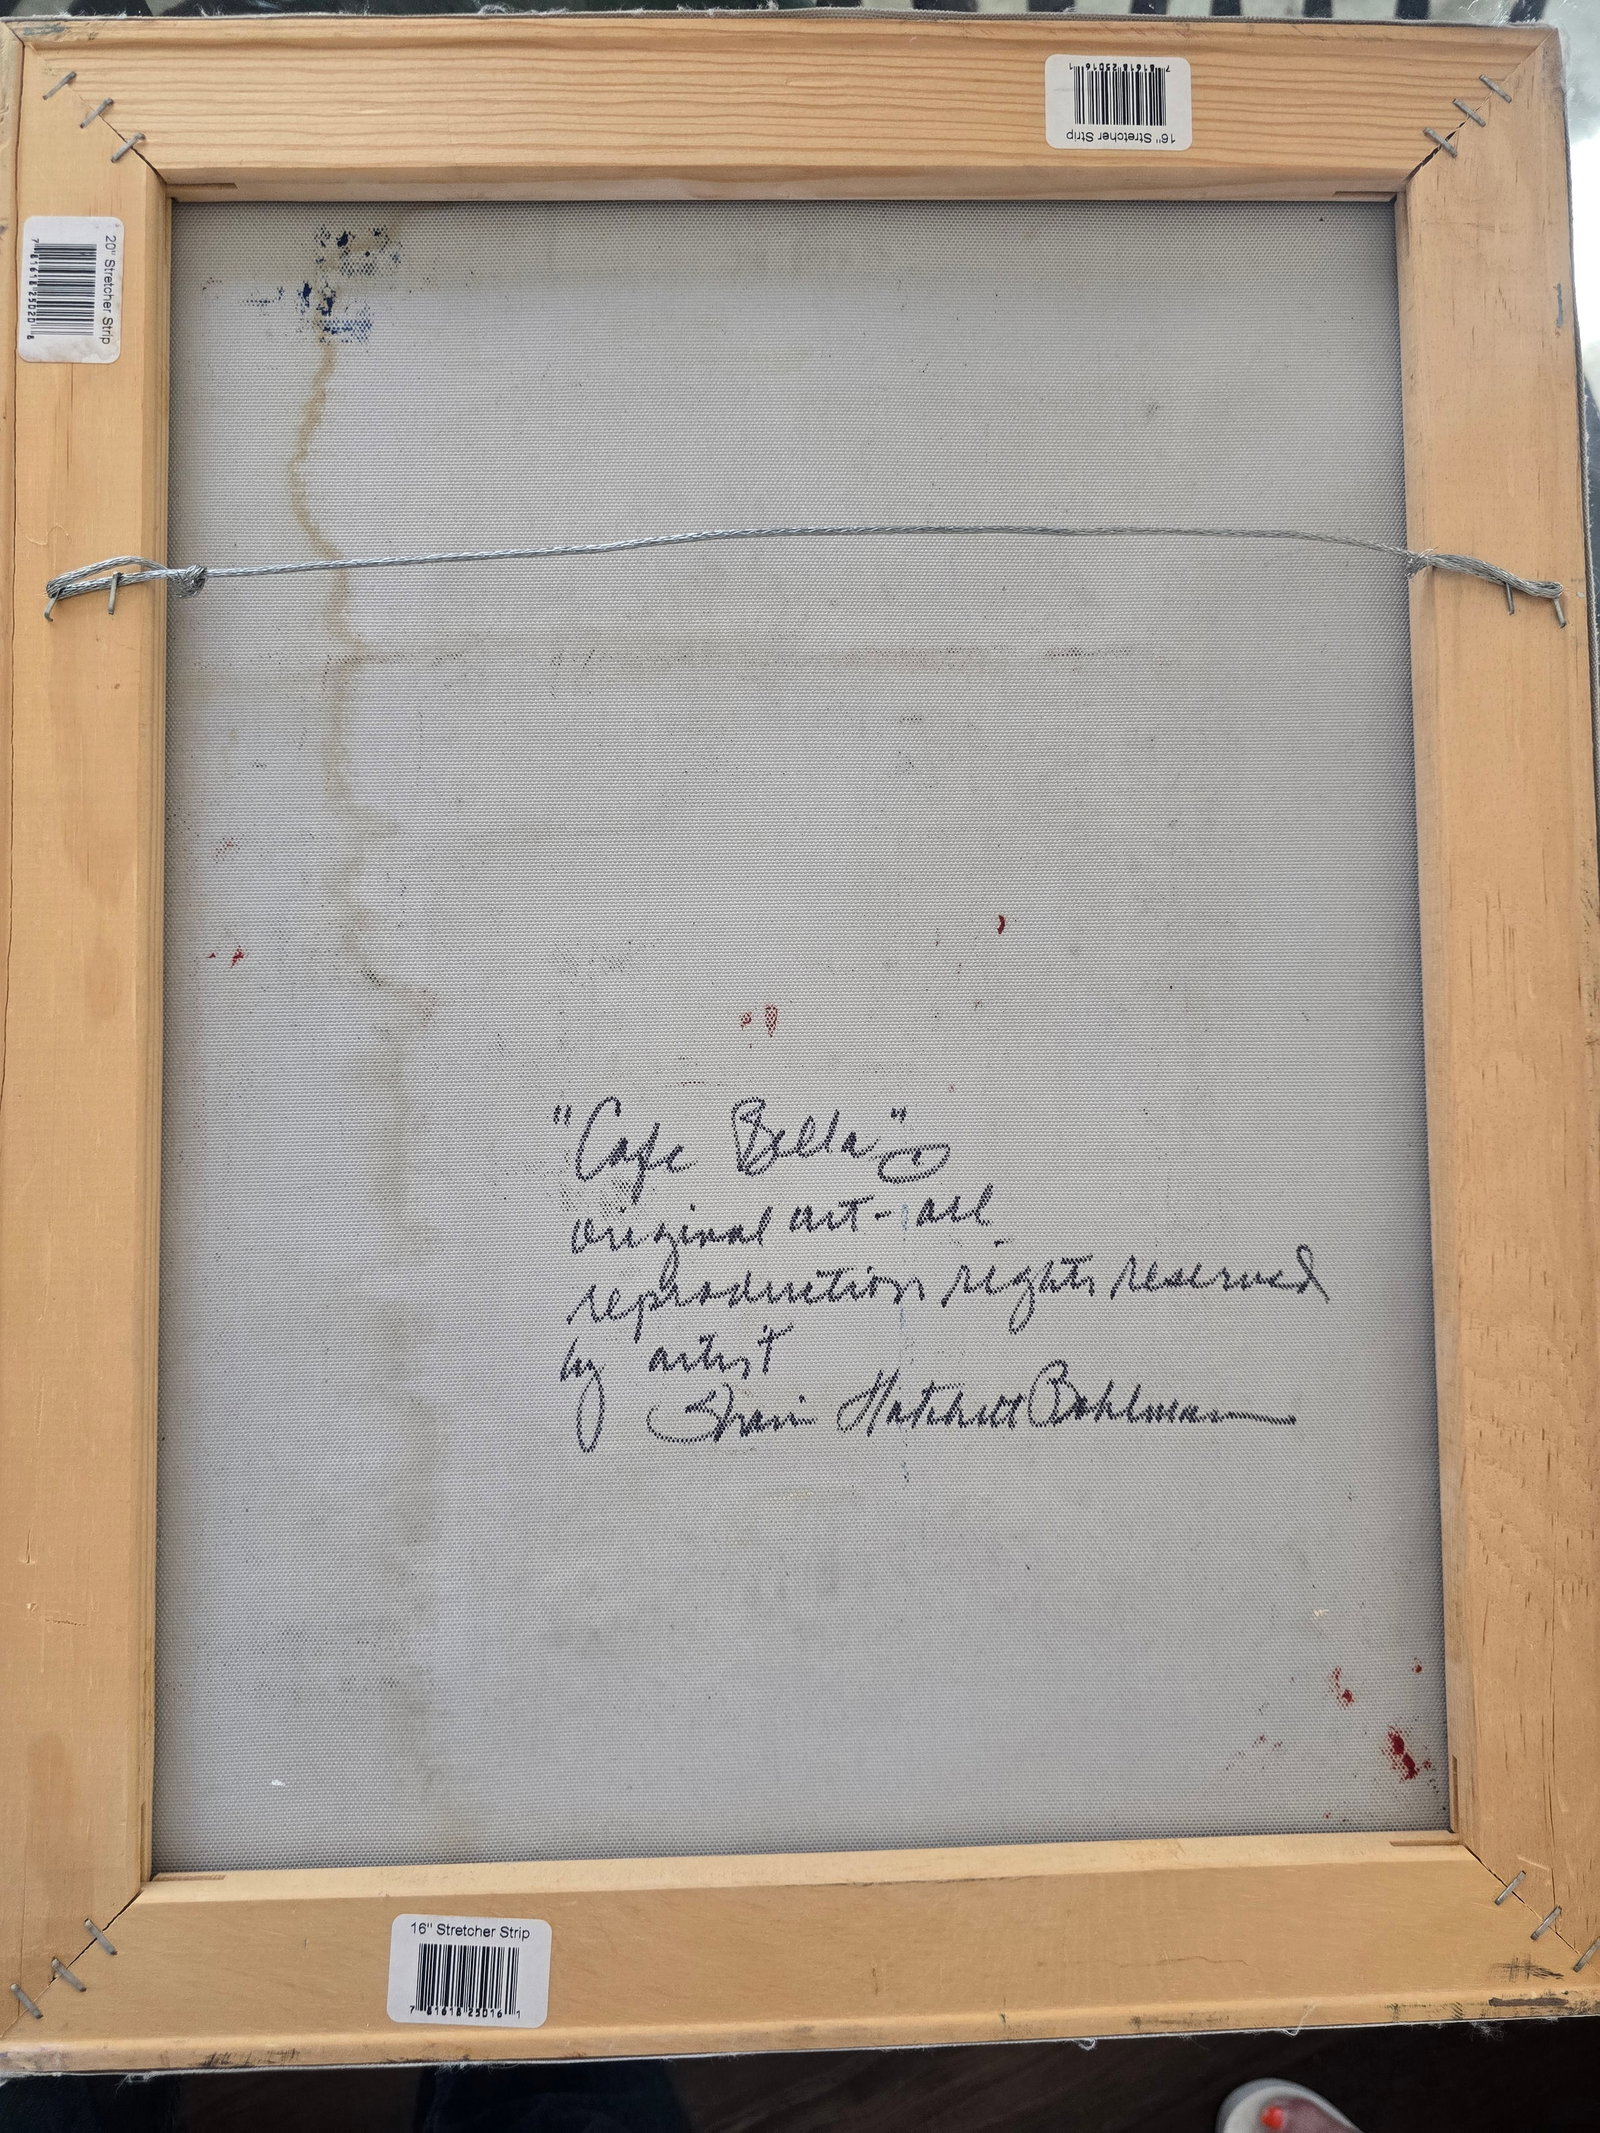 16" Stretcher Strip
7 81618 25016 1
20" Stretcher Strip
7 81618 25020 8
"Cafe Bella"
original art - all
reproduction rights reserved
by artist
Shari Hatchett Bohlmann
16" Stretcher Strip
7 81618 25016 1